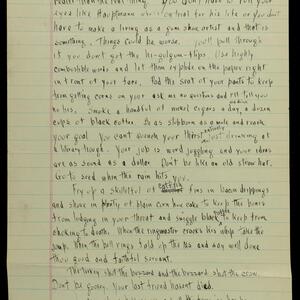 than the real thing. You don't have to roll your
eyes like Hauptmann when on trial for his life or you don't
have to make a living as a gum shoe artist and that is
something. Things could be worse. You'll pull through
if you don't get the hu-gulgum-flips. Use highly
combustible words and let them explode on the paper right
in front of your face. Pad the seat of your pants to keep
from getting corns on your ask me no questions and I'll tell you
no lies. Smoke a handful of nickel cigars a day a dozen
cups of black coffee. Be as stubborn as a mule and reach
your goal. You can't quench your thirst by just drawing at
a library hough. Your job is word juggling and your ideas
are as sound as a dollar. Don't be like an old straw hat.
Go to seed when the rain hits you.
Fry up a skilletful of catfish fins in bacon drippings
and shove in plenty of plain corn hoe cake to keep the bones
from lodging in your throat and swiggle black coffee to keep from
choking to death. When the ringmaster cracks his whip take the
jump. When the bell rings hold up the
thou good and faithful servant.
The turkey shot the buzzard and the buzzard shot the crow.
Don't be gooney. Your last friend hasent died.